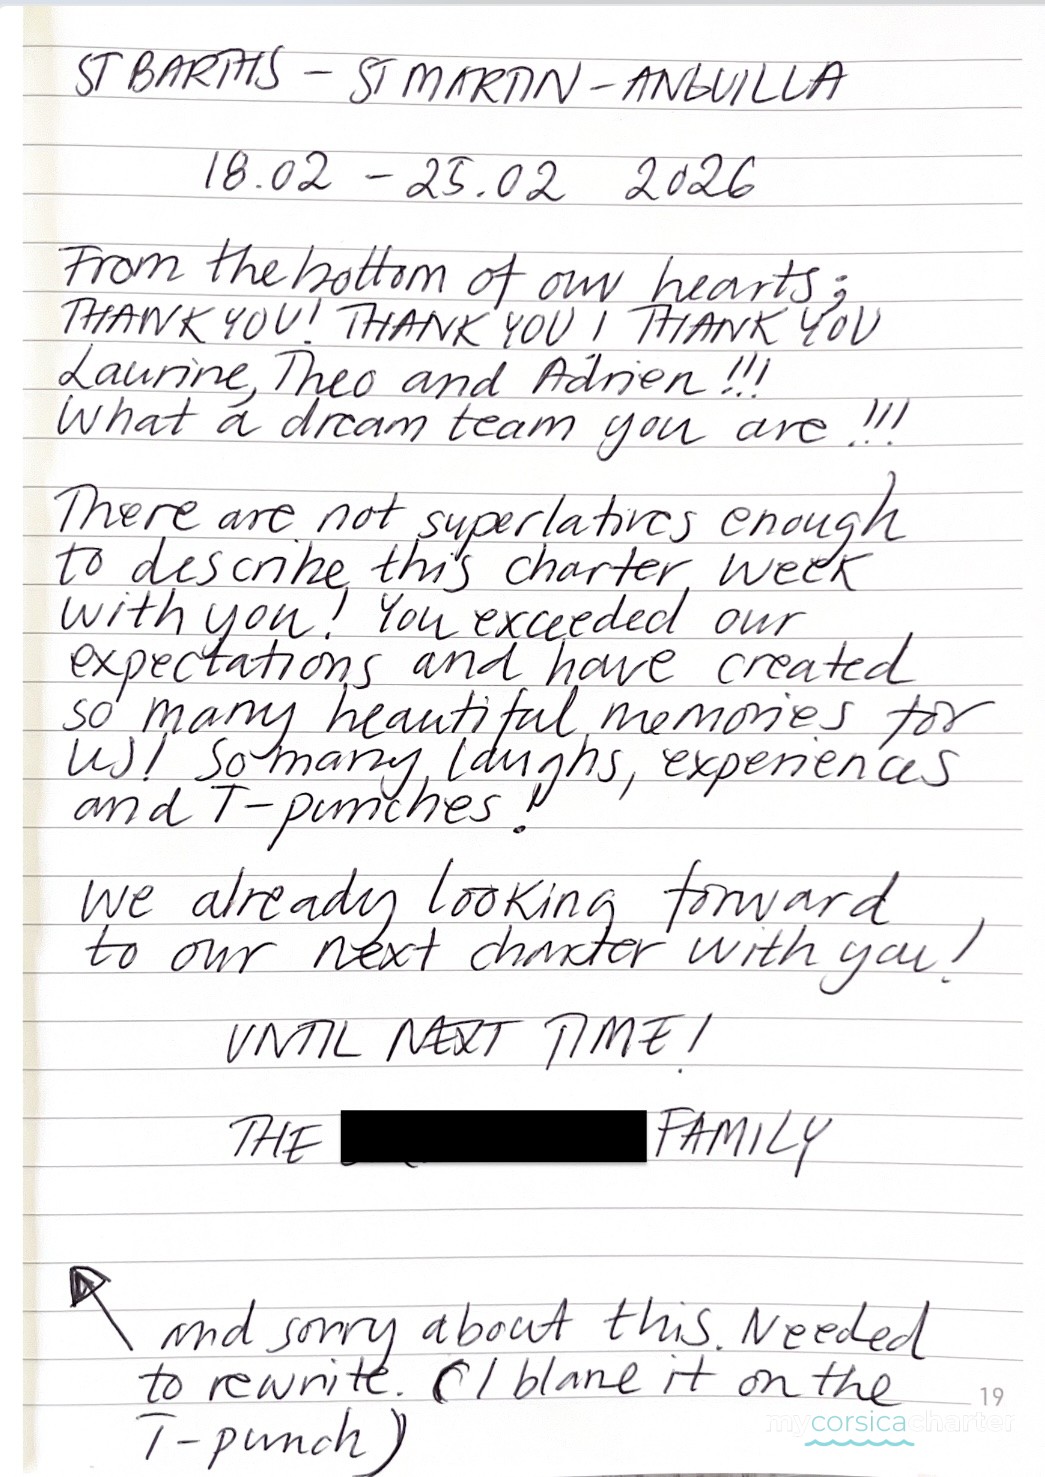 ST BARTHS - ST MARTIN - ANGUILLA
18.02 - 25.02 2026
From the bottom of our hearts;
THANK YOU! THANK YOU! THANK YOU
Laurine, Theo and Adrien !!!
What a dream team you are !!!
There are not superlatives enough
to describe this charter week
with you! You exceeded our
expectations and have created
so many beautiful memories for
us! So many laughs, experiences
and T-punches!
We already looking forward
to our next charter with you!
UNTIL NEXT TIME!
THE FAMILY
and sorry about this. Needed
to rewrite. (I blane it on the
T-punch)
19
mycorsicacharter